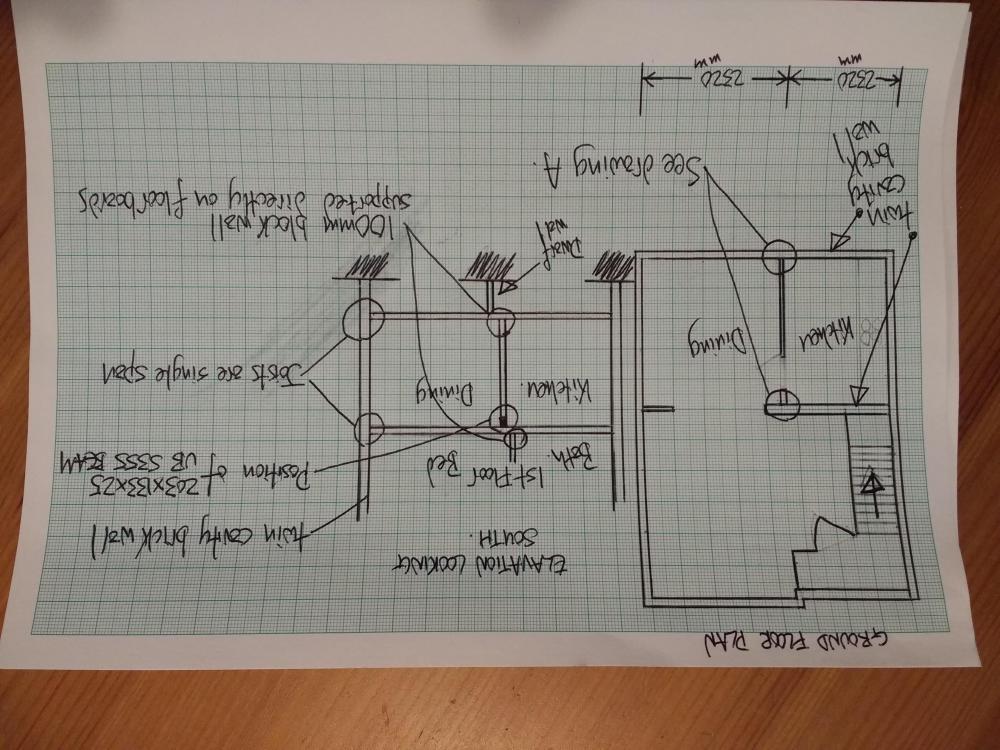 GROUND FLOOR PLAN
Kitchen
Dining
twin
cavity
brick
wall
See drawing A.
2320
mm
2320
mm
ELAVATION LOOKING
SOUTH.
Bath.
1st Floor Bed
Kitchen.
Dining
Dwarf
wall
twin cavity brick wall
Position of
203x133x25
UB S355 BEAM
Joists are single span
100mm block wall
supported directly on floorboards